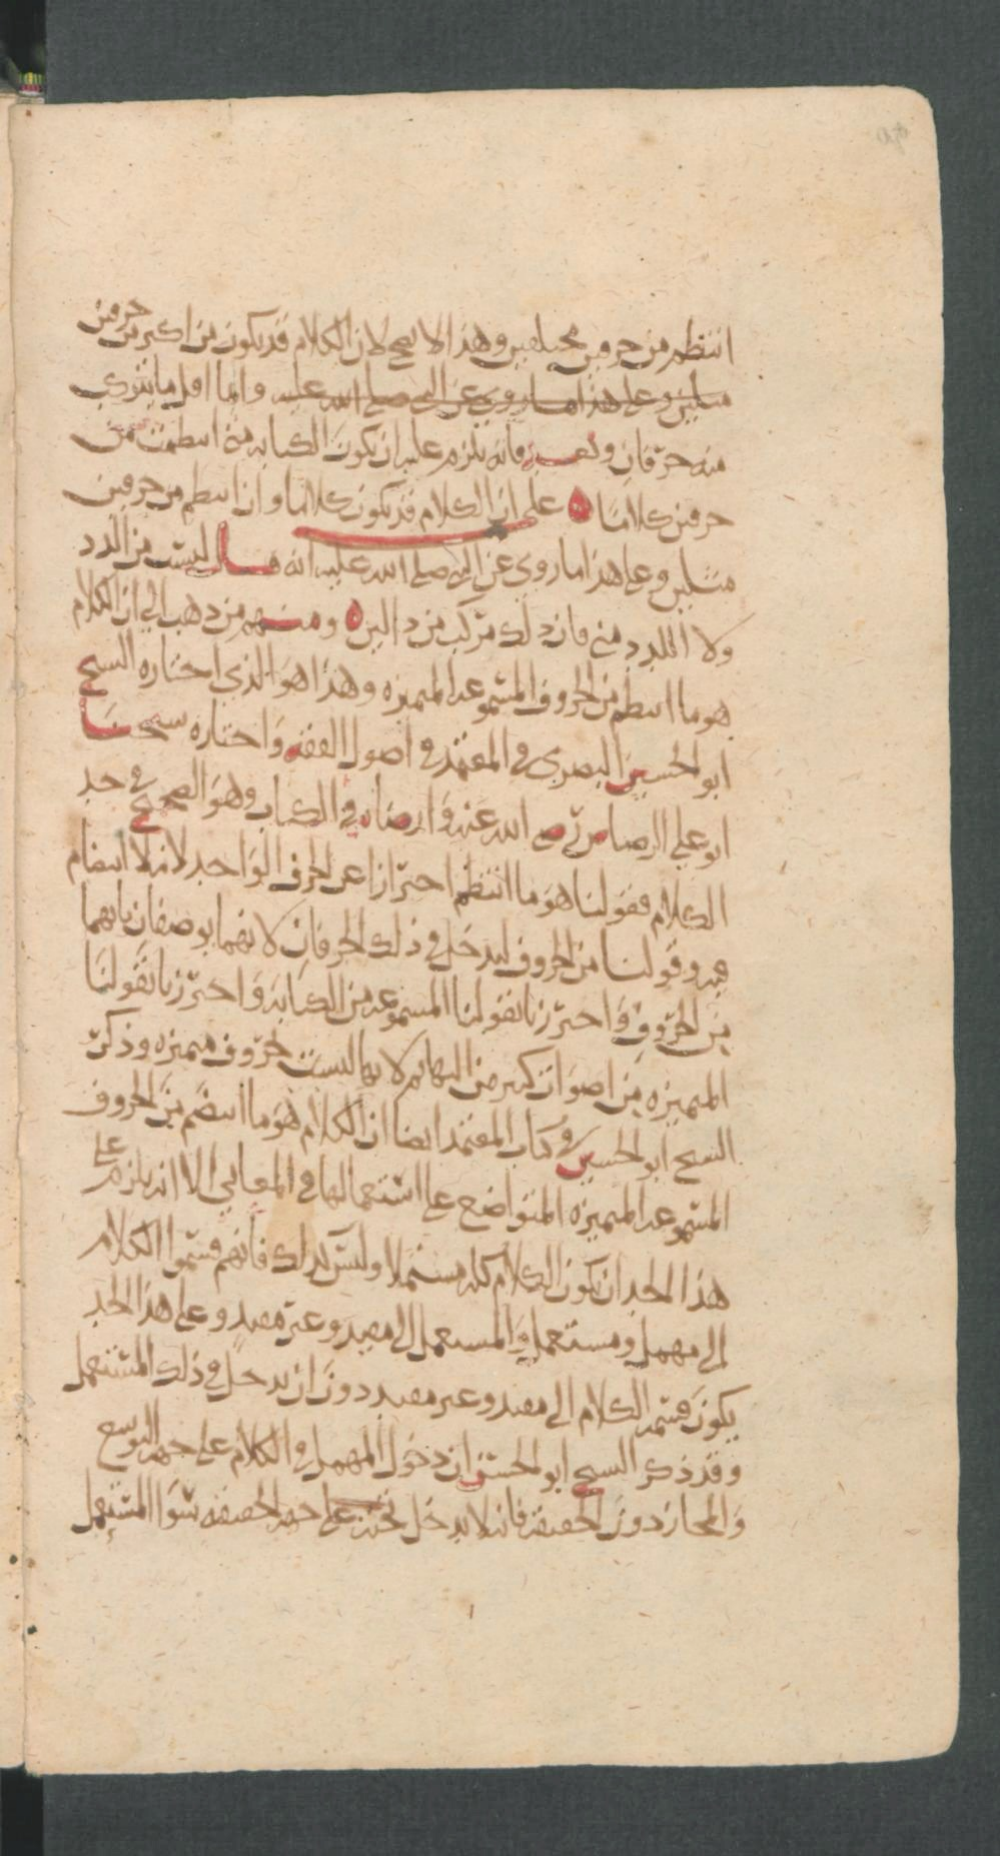 انتظم من حرفين مختلفين وهذا لا يصح لان الكلام قد يكون من اكثر من حرفين
مثلين وعلى هذا ما روي عن النبي صلى الله عليه واما اقل ما يتركب
منه حرفان وبعد فانه يلزم عليه ان تكون الكتابه متى انتظمت من
حرفين كلاما ه على ان الكلام قد يكون كلاما وان انتظم من حرفين
مثلين وعلى هذا ما روي عن النبي صلى الله عليه انه قال ليست من الدد
ولا الدد مني فان ذلك مركب من دالين ه ومنهم من ذهب الى ان الكلام
هو ما انتظم من الحروف المسموعه المتميزه وهذا هو الذي اختاره الشيخ
ابو الحسين البصري في المعتمد في اصول الفقه واختاره شيخنا
ابو علي الرصاص رضي الله عنه وارضاه في الكتاب وهو الصحيح في حد
الكلام فقولنا هو ما انتظم احترازا عن الحرف الواحد لانه لا انتظام
فيه وقولنا من الحروف ليدخل في ذلك الحرفان لانهما يوصفان بانهما
من الحروف واحترزنا بقولنا المسموعه من الكتابه واحترزنا بقولنا
المتميزه من اصوات كثير من البهائم لانها ليست بحروف متميزه وذكر
الشيخ ابو الحسين في كتاب المعتمد ايضا ان الكلام هو ما انتظم من الحروف
المسموعه المتميزه المتواضع على استعمالها في المعاني الا انه يلزم على
هذا الحد ان يكون الكلام كله مستعملا وليس كذلك فانهم قسموا الكلام
الى مهمل ومستعمل والمستعمل الى مفيد وغير مفيد وعلى هذا الحد
يكون قسمه الكلام الى مفيد وغير مفيد دون ان يدخل في ذلك المستعمل
وقد ذكر الشيخ ابو الحسين ان دخول المهمل في الكلام على جهه التوسع
والمجاز دون الحقيقه فانه لا يدخل تحته على جهه الحقيقه سوا المستعمل